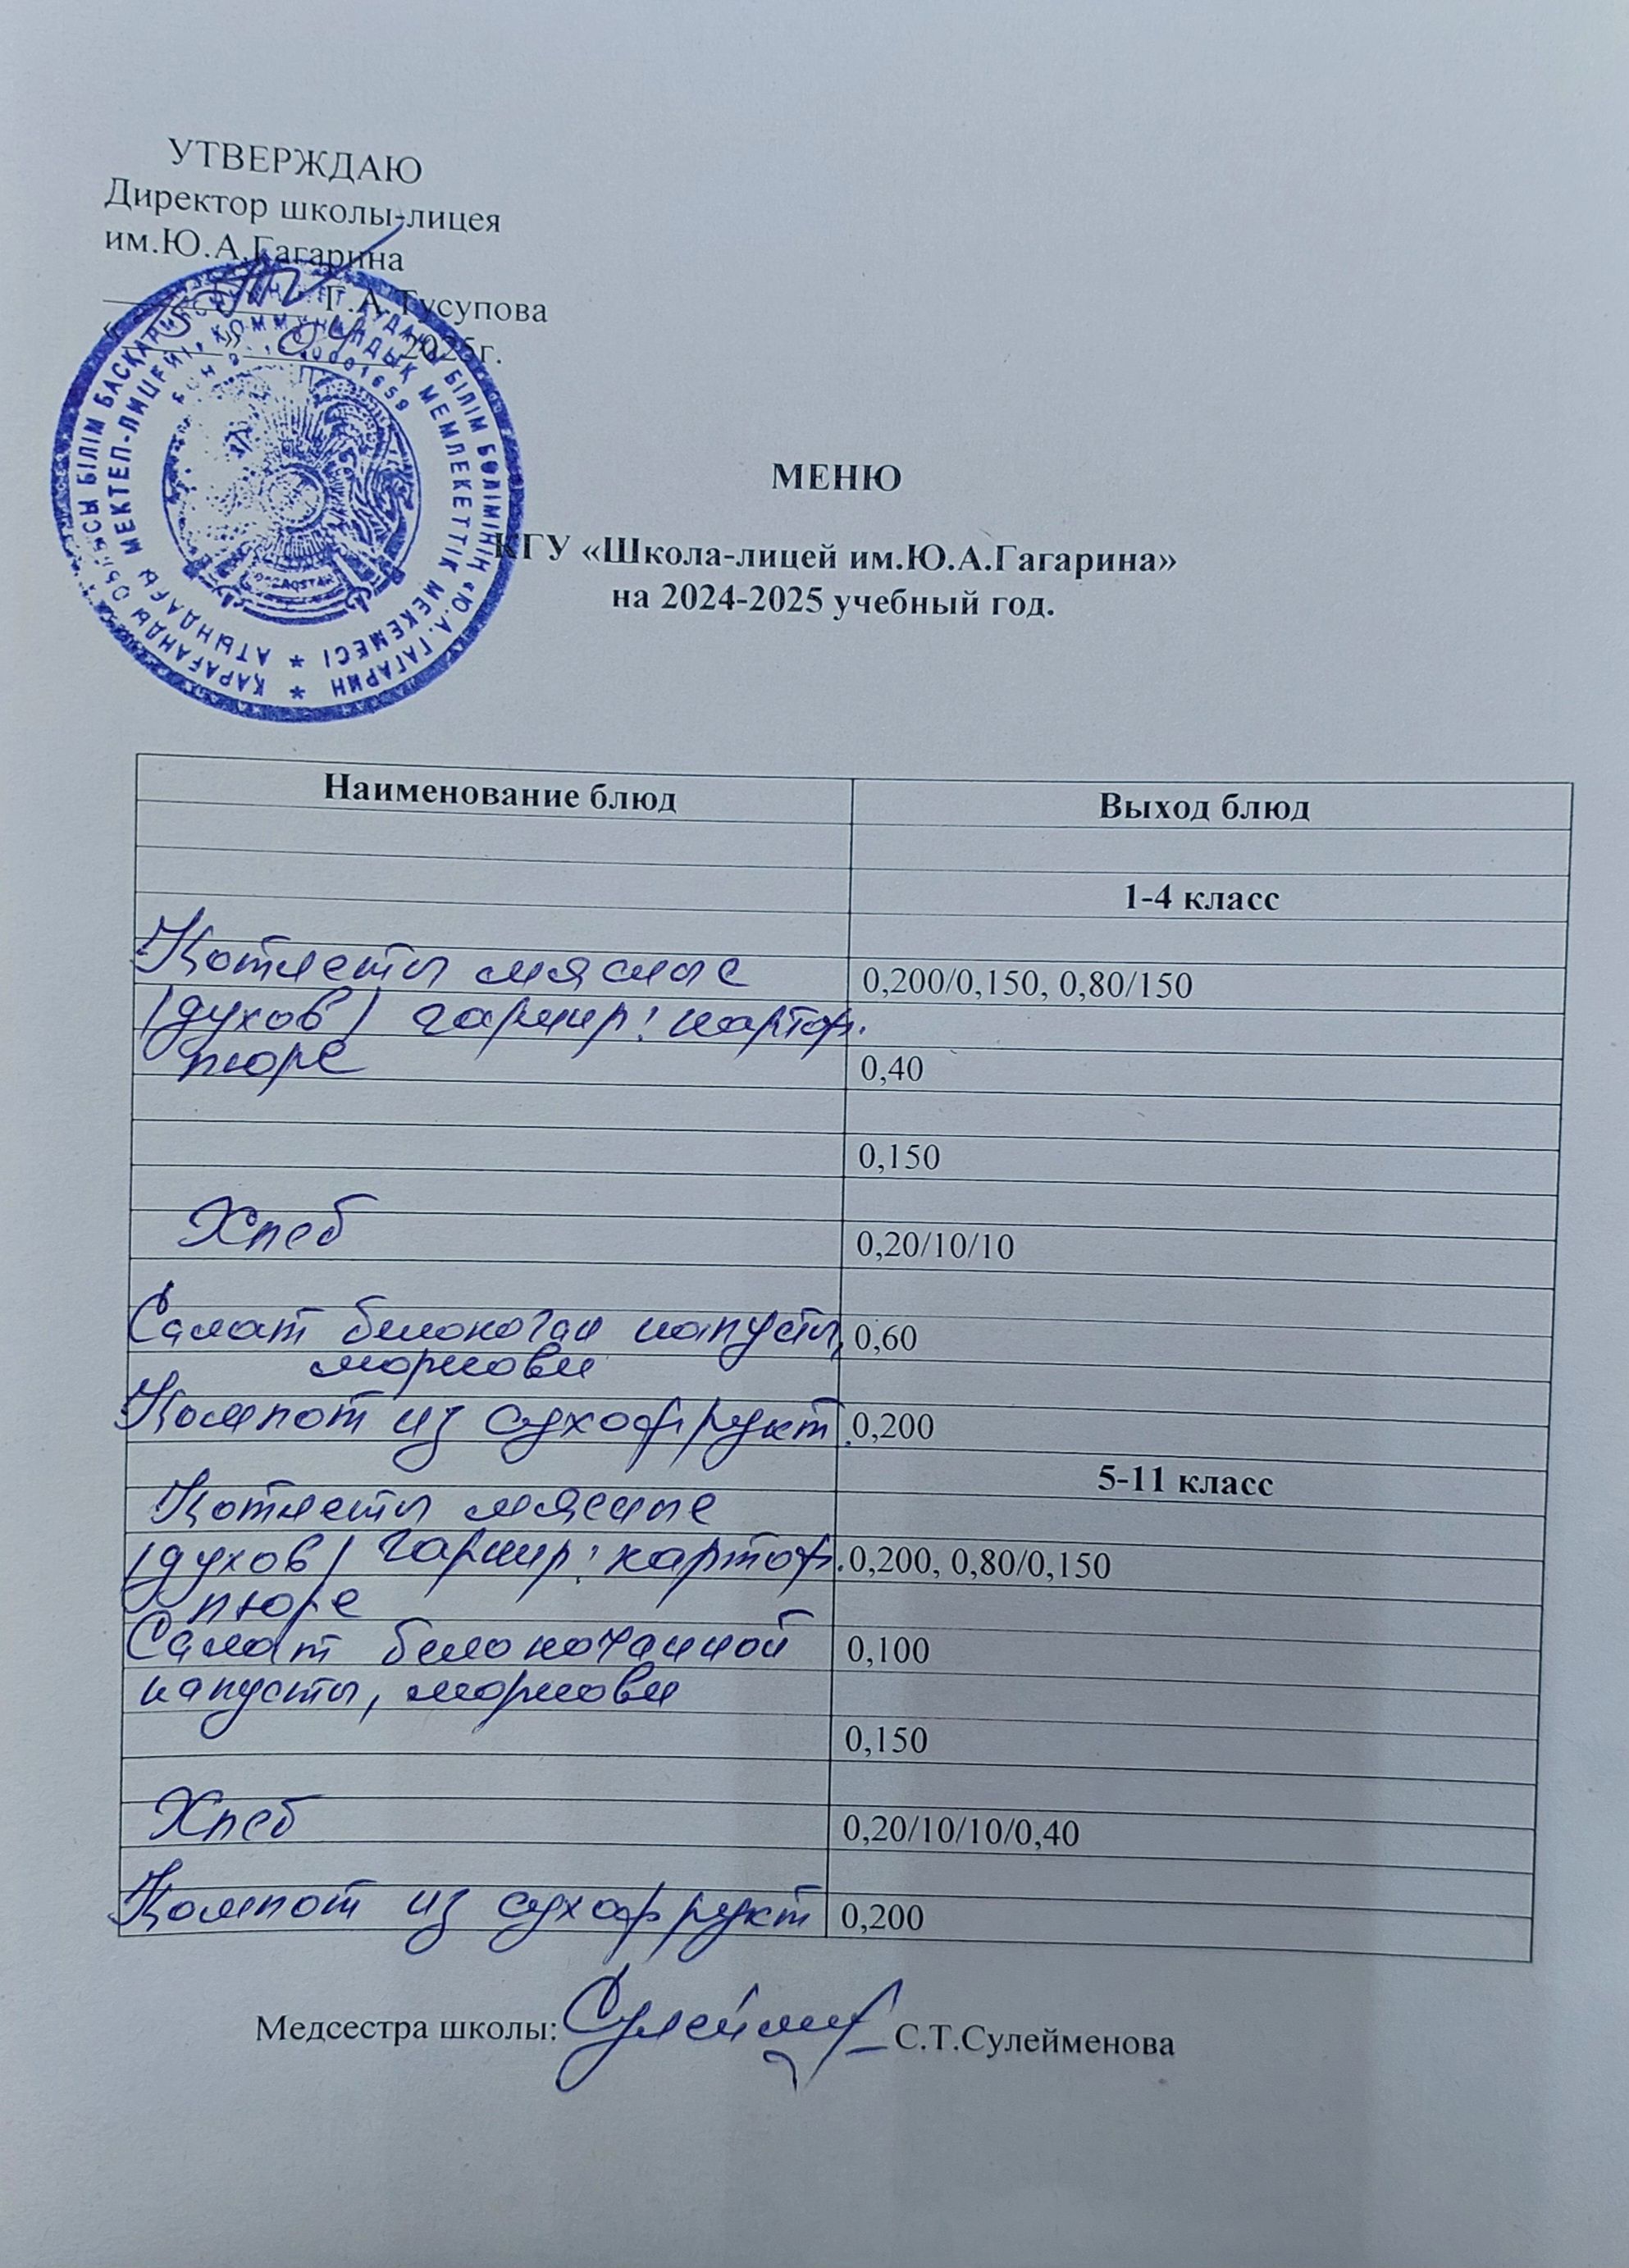 УТВЕРЖДАЮ
Директор школы-лицея
им.Ю.А.Гагарина
Г.А.Тусупова
04 2025г.
ҚАРАҒАНДЫ ОБЛЫСЫ БІЛІМ БАСҚАРМАСЫНЫҢ БІЛІМ БӨЛІМІНІҢ «Ю.А. ГАГАРИН
АТЫНДАҒЫ МЕКТЕП-ЛИЦЕЙІ» КОММУНАЛДЫҚ МЕМЛЕКЕТТІК МЕКЕМЕСІ
QAZAQSTAN
МЕНЮ
КГУ «Школа-лицей им.Ю.А.Гагарина»
на 2024-2025 учебный год.
Наименование блюд Выход блюд
1-4 класс
Котлеты мясные 0,200/0,150, 0,80/150
(духов) гарнир: картоф.
пюре 0,40
0,150
Хлеб 0,20/10/10
Салат белокочан капусты, 0,60
моркови
Компот из сухофрукт. 0,200
5-11 класс
Котлеты мясные
(духов) гарнир: картоф. 0,200, 0,80/0,150
пюре
Салат белокочанной 0,100
капусты, моркови
0,150
Хлеб 0,20/10/10/0,40
Компот из сухофрукт 0,200
Медсестра школы: С.Т.Сулейменова